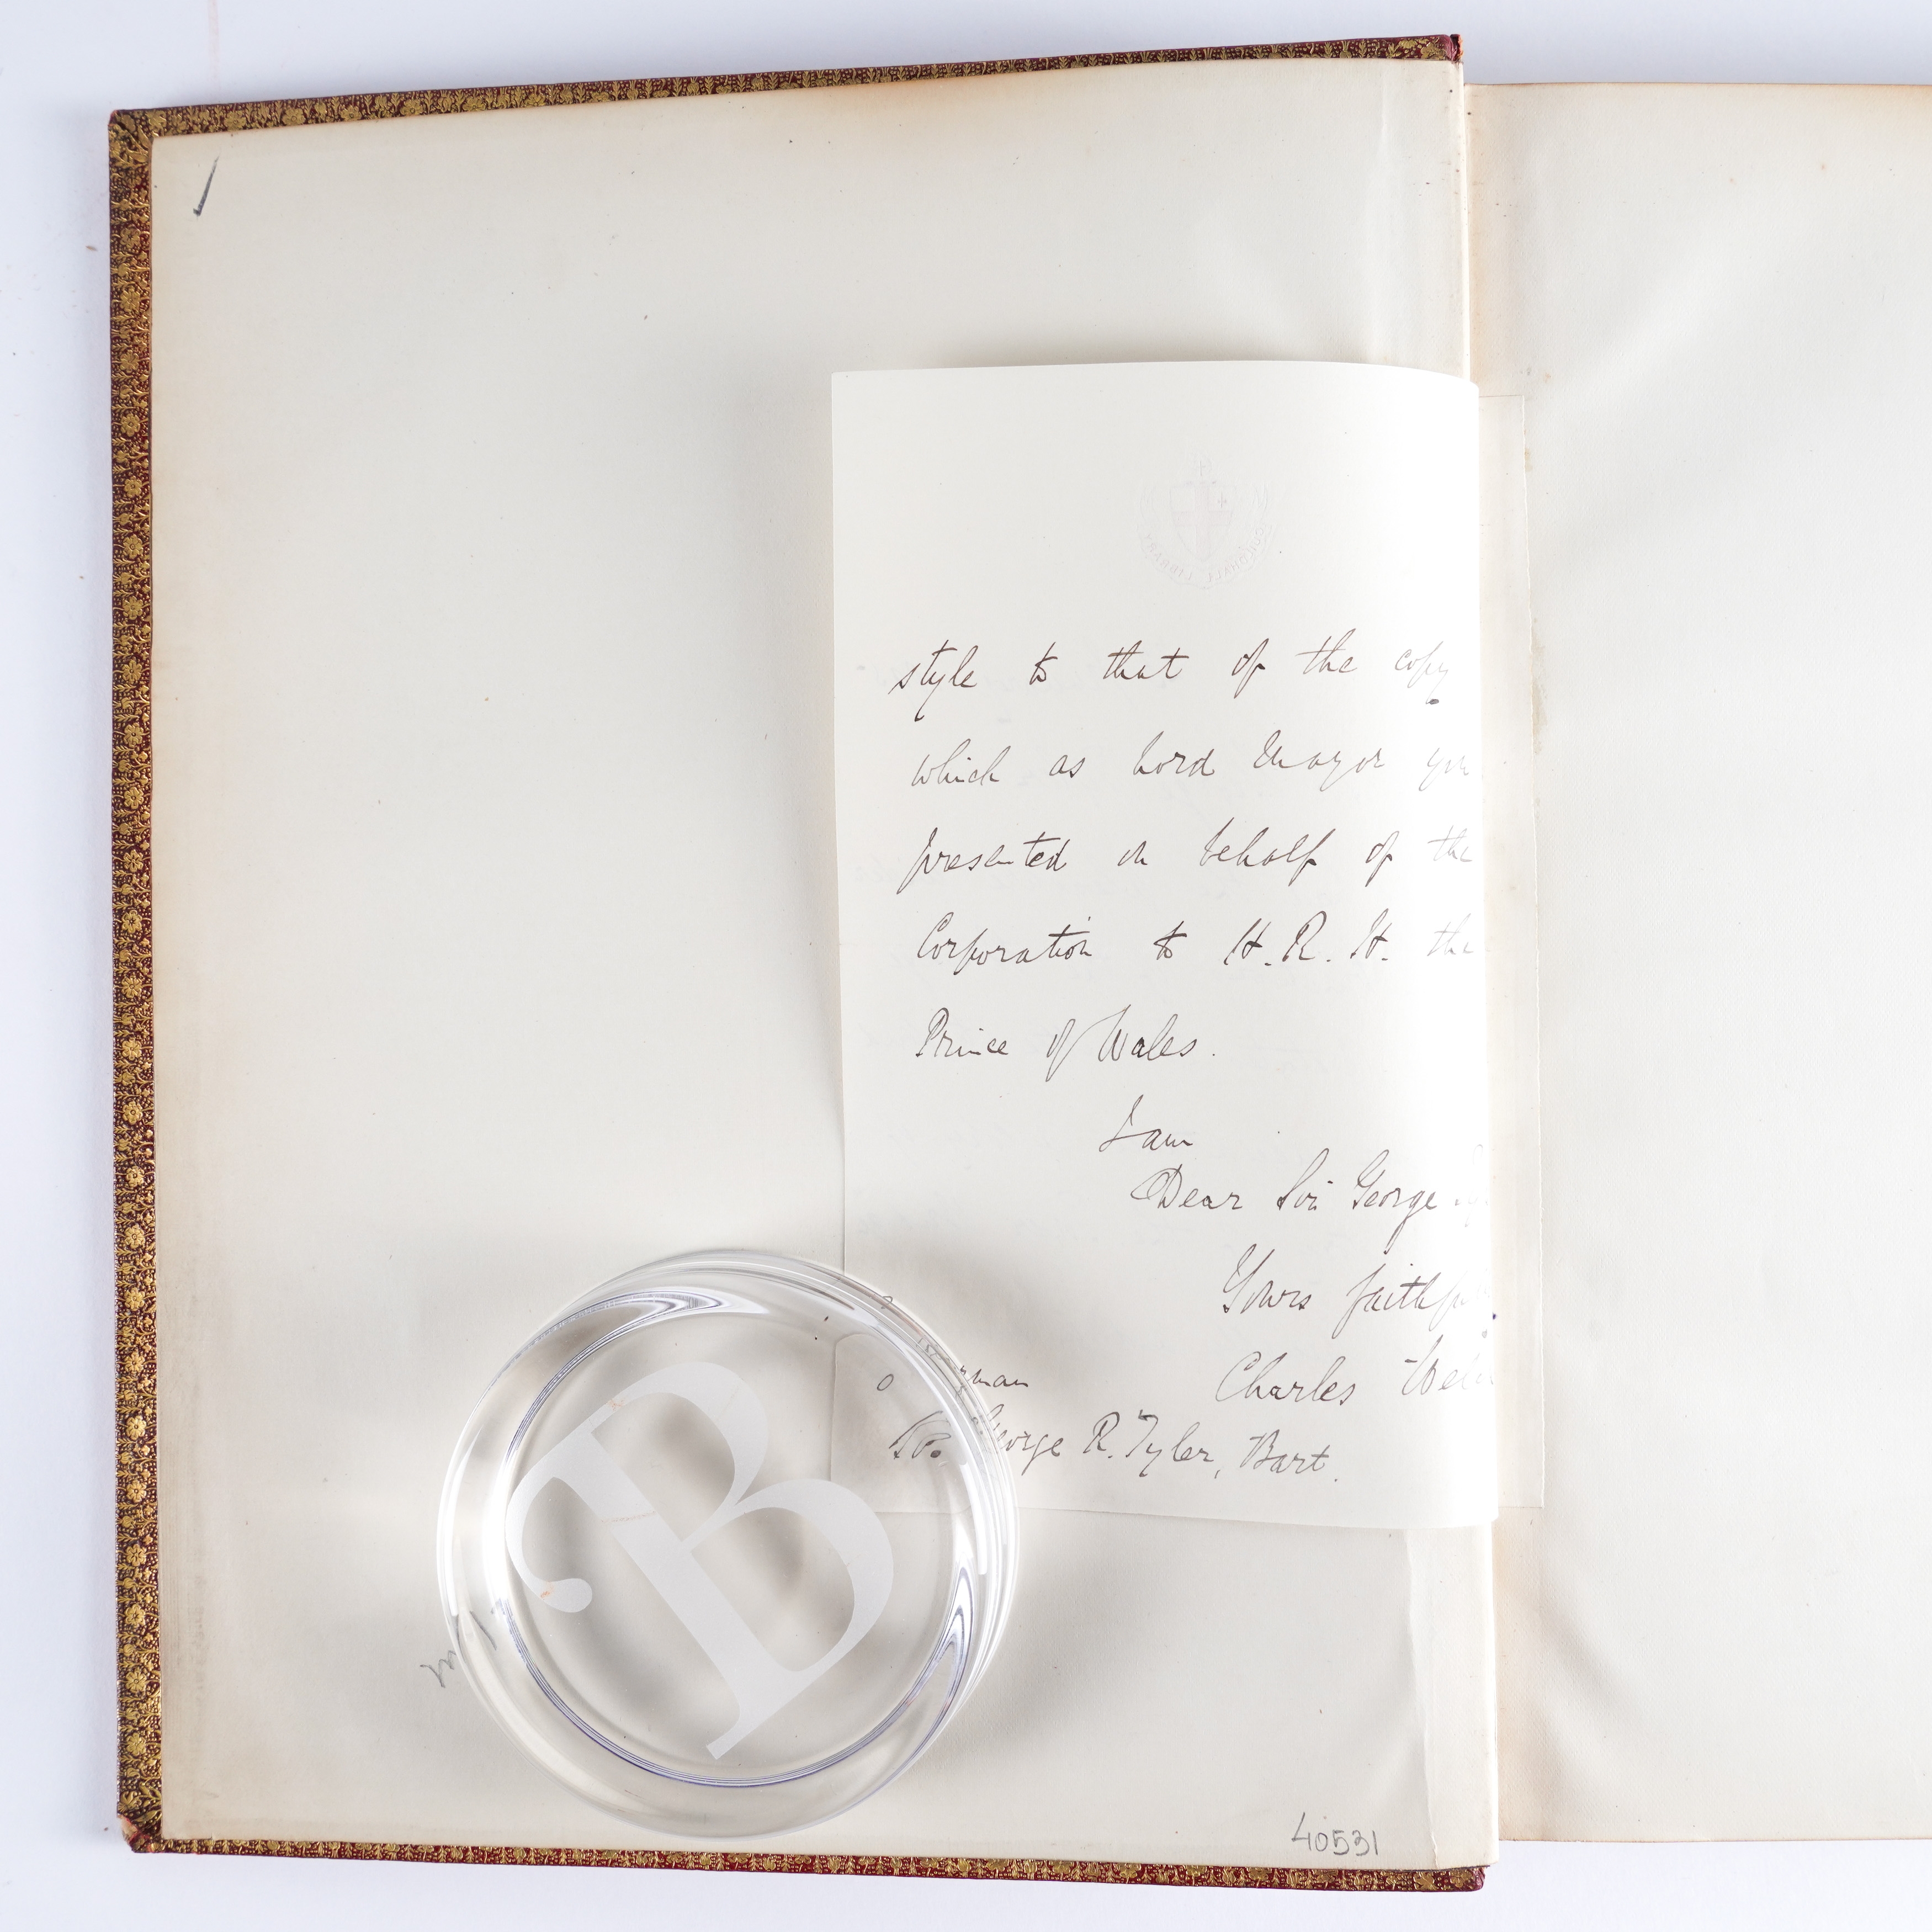 GUILDHALL LIBRARY
style to that of the copy
which as Lord Mayor you
presented on behalf of the
Corporation to H.R.H. the
Prince of Wales.
I am
Dear Sir George
Yours faithfu
Charles Wel
man
Sir George R. Tyler, Bart.
B
40531